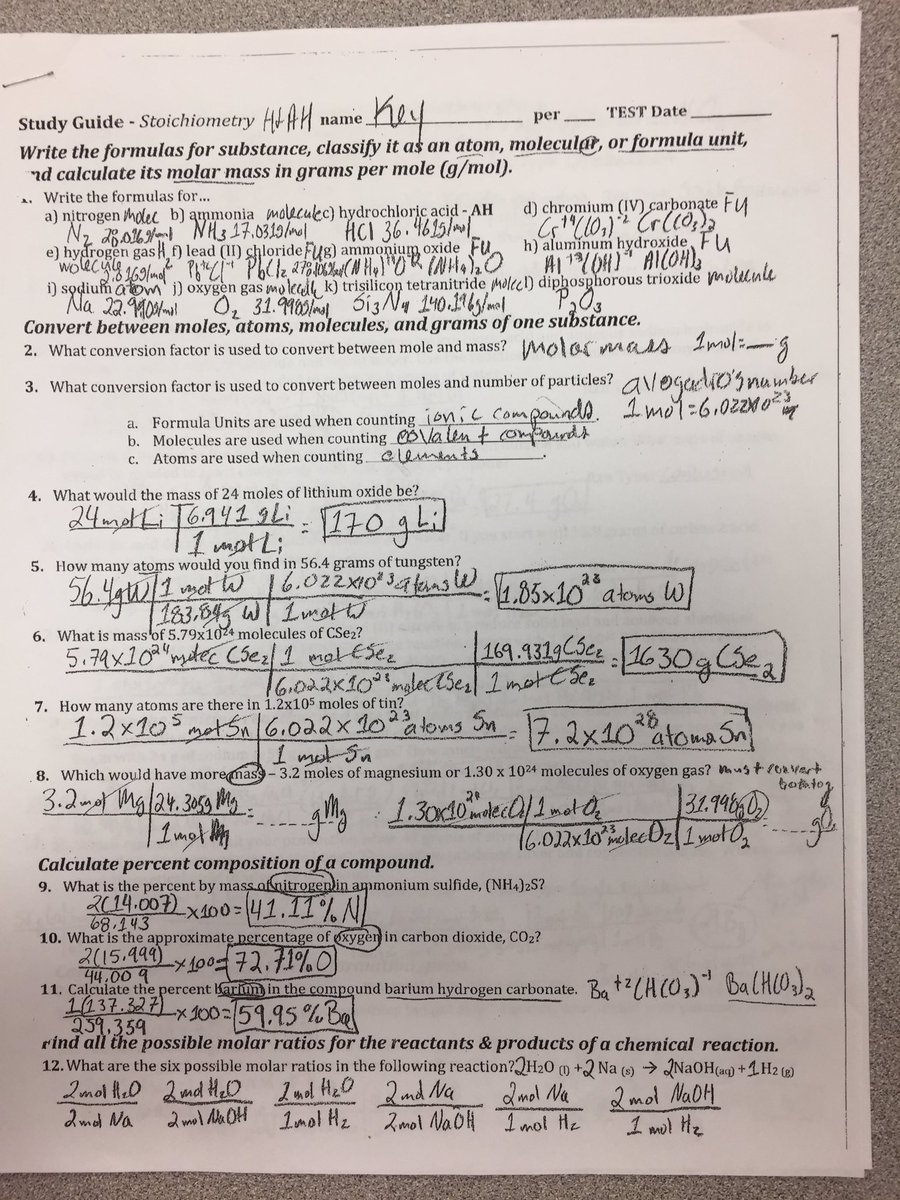 Study Guide - Stoichiometry H+AH name Key per ____ TEST Date ________
Write the formulas for substance, classify it as an atom, molecular, or formula unit,
nd calculate its molar mass in grams per mole (g/mol).
1. Write the formulas for...
a) nitrogen molec b) ammonia molecule c) hydrochloric acid - AH d) chromium (IV) carbonate FU
N2 28.016g/mol NH3 17.031g/mol HCl 36.461g/mol Cr+4(CO3)-2 Cr(CO3)2
e) hydrogen gas H2 f) lead (II) chloride FU g) ammonium oxide FU h) aluminum hydroxide FU
molecule Pb+2Cl-1 PbCl2 (NH4)+1O-2 (NH4)2O Al+3(OH)-1 Al(OH)3
i) sodium atom j) oxygen gas molecule k) trisilicon tetranitride molec l) diphosphorous trioxide molecule
Na 22.990g/mol O2 31.998g/mol Si3N4 P2O3
Convert between moles, atoms, molecules, and grams of one substance.
2. What conversion factor is used to convert between mole and mass? molar mass 1mol=__g
3. What conversion factor is used to convert between moles and number of particles? avogadro's number
1 mol=6.022x10^23
a. Formula Units are used when counting ionic compounds.
b. Molecules are used when counting covalent compounds
c. Atoms are used when counting elements.
4. What would the mass of 24 moles of lithium oxide be?
24 mol Li | 6.941 g Li = 170 g Li
1 mol Li
5. How many atoms would you find in 56.4 grams of tungsten?
56.4g W | 1 mol W | 6.022x10^23 atoms W = 1.85x10^28 atoms W
183.84g W | 1 mol W
6. What is mass of 5.79x10^24 molecules of CSe2?
5.79x10^24 molec CSe2 | 1 mol CSe2 | 169.931g CSe2 = 1630 g CSe2
6.022x10^23 molec CSe2 | 1 mol CSe2
7. How many atoms are there in 1.2x10^5 moles of tin?
1.2x10^5 mol Sn | 6.022x10^23 atoms Sn = 7.2x10^28 atoms Sn
1 mol Sn
8. Which would have more mass – 3.2 moles of magnesium or 1.30 x 10^24 molecules of oxygen gas? must convert
both to g
3.2 mol Mg | 24.305g Mg = ____ g Mg 1.30x10^24 molec O2 | 1 mol O2 | 31.998g O2 = ____ g O2
1 mol Mg 6.022x10^23 molec O2 | 1 mol O2
Calculate percent composition of a compound.
9. What is the percent by mass of nitrogen in ammonium sulfide, (NH4)2S?
2(14.007) x100= 41.11% N
68.143
10. What is the approximate percentage of oxygen in carbon dioxide, CO2?
2(15.999) x100= 72.71% O
44.009
11. Calculate the percent barium in the compound barium hydrogen carbonate. Ba+2(HCO3)-1 Ba(HCO3)2
1(137.327) x100= 59.95% Ba
259.359
Find all the possible molar ratios for the reactants & products of a chemical reaction.
12. What are the six possible molar ratios in the following reaction? 2H2O (l) + 2 Na (s) → 2NaOH(aq) + 1H2 (g)
2 mol H2O 2 mol H2O 2 mol H2O 2 mol Na 2 mol Na 2 mol NaOH
2 mol Na 2 mol NaOH 1 mol H2 2 mol NaOH 1 mol H2 1 mol H2